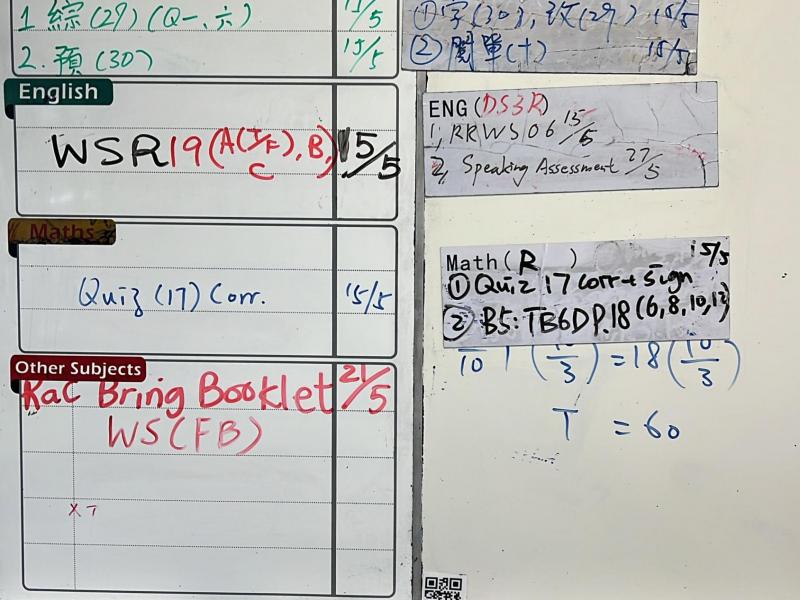 1 綜(29)(Q一、六) 15/5
2. 預(30) 15/5
English
WSR19(A(T/F), B, 15/5
C
Maths
Quiz (17) Corr. 15/5
Other Subjects
RaC Bring Booklet 21/5
WS(FB)
X T
①字(30), 改(29) 15/5
② 閱單(十) 15/5
ENG (DS3R)
1, RRWS06 15/5
2, Speaking Assessment 27/5
Math ( R ) 15/5
① Quiz 17 corr + sign
② B5: TB6D P.18 (6, 8, 10, 12)
T = 60